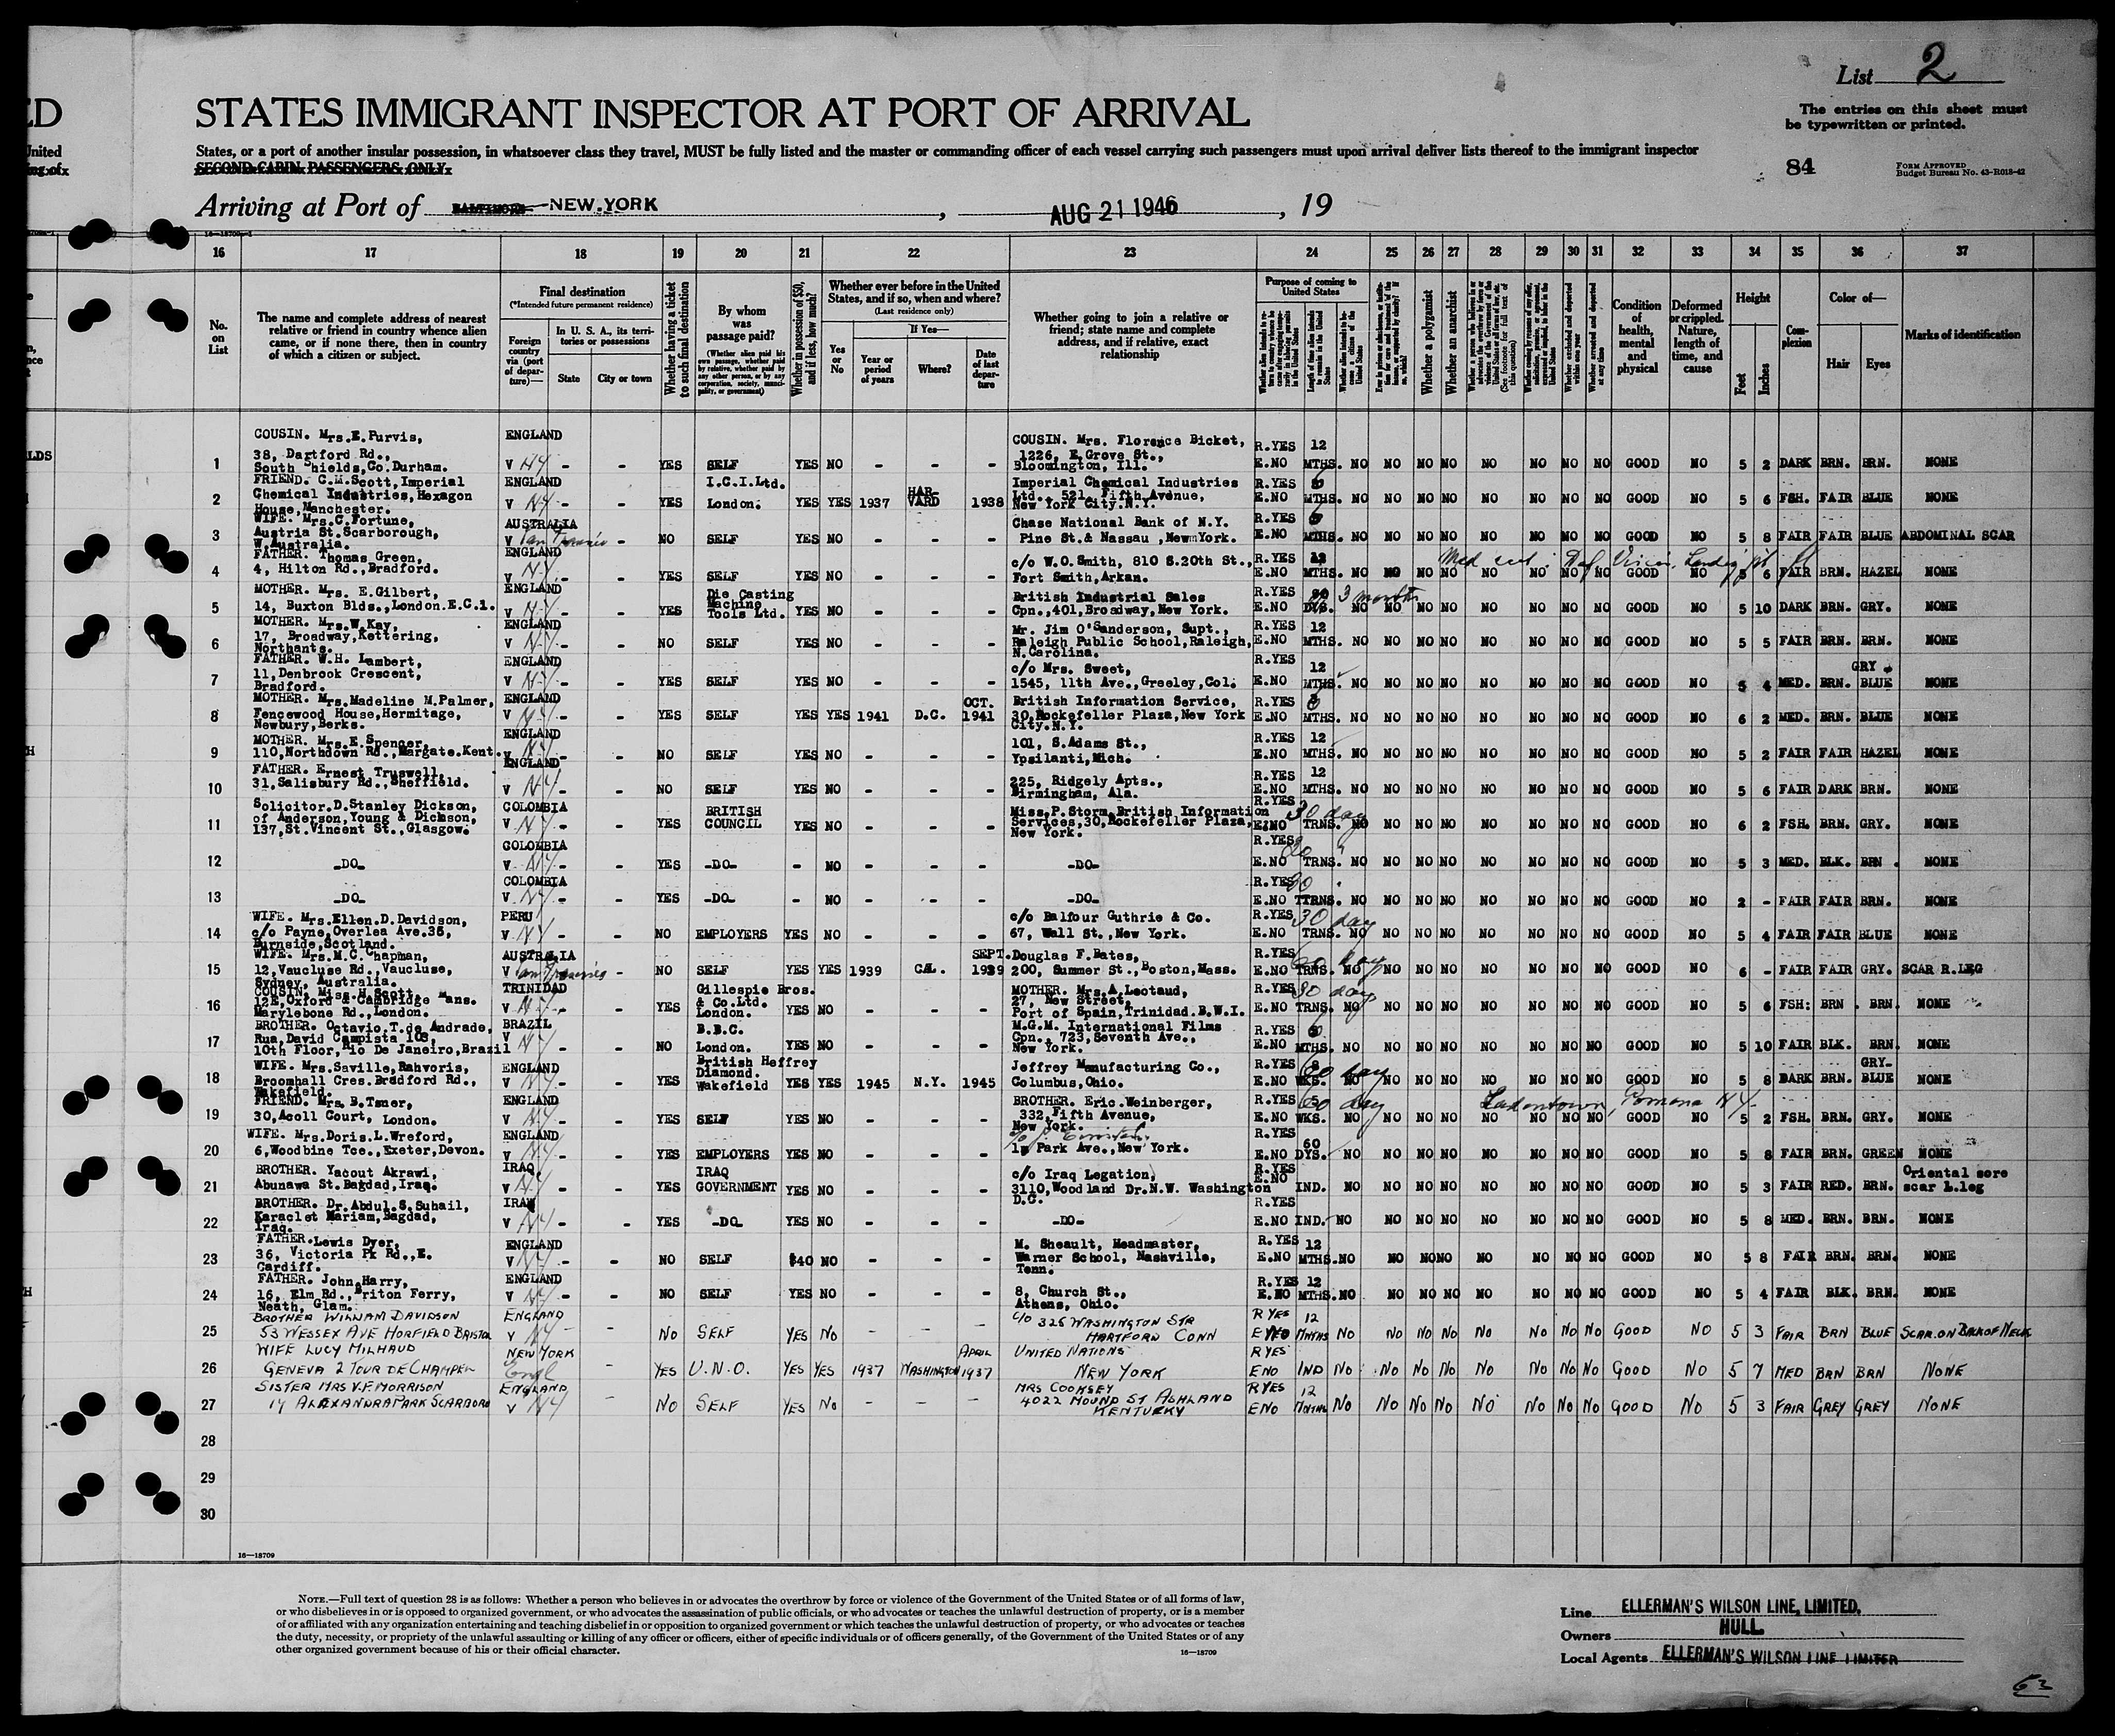 List 2
ED
STATES IMMIGRANT INSPECTOR AT PORT OF ARRIVAL
The entries on this sheet must
be typewritten or printed.
United
States, or a port of another insular possession, in whatsoever class they travel, MUST be fully listed and the master or commanding officer of each vessel carrying such passengers must upon arrival deliver lists thereof to the immigrant inspector
SECOND-CABIN PASSENGERS ONLY
84
Form Approved
Budget Bureau No. 43-R018-42
Arriving at Port of BALTIMORE NEW.YORK, AUG 21 1946, 19
16—18709-1
16 17 18 19 20 21 22 23 24 25 26 27 28 29 30 31 32 33 34 35 36 37
No. on List
The name and complete address of nearest relative or friend in country whence alien came, or if none there, then in country of which a citizen or subject.
Final destination
(*Intended future permanent residence)
Foreign country via (port of departure)—
In U. S. A., its territories or possessions
State
City or town
Whether having a ticket to such final destination
By whom was passage paid?
(Whether alien paid his own passage, whether paid by relative, whether paid by any other person, or by any corporation, society, municipality, or government)
Whether in possession of $50, and if less, how much?
Whether ever before in the United States, and if so, when and where?
(Last residence only)
Yes or No
If Yes—
Year or period of years
Where?
Date of last departure
Whether going to join a relative or friend; state name and complete address, and if relative, exact relationship
Purpose of coming to United States
Whether a polygamist
Whether an anarchist
Whether excluded and deported within one year
Whether arrested and deported at any time
Condition of health, mental and physical
Deformed or crippled. Nature, length of time, and cause
Height
Feet
Inches
Complexion
Color of—
Hair
Eyes
Marks of identification
COUSIN. Mrs.E.Purvis, ENGLAND COUSIN. Mrs. Florence Bicket, R.YES 12
38, Dartford Rd., 1226, E.Grove St.,
1 South Shields,Co.Durham. V NY - - YES SELF YES NO - - - Bloomington, Ill. E.NO MTHS. NO NO NO NO NO NO NO NO GOOD NO 5 2 DARK BRN. BRN. NONE
FRIEND. C.M.Scott, Imperial ENGLAND I.C.I.Ltd. Imperial Chemical Industries R.YES 6
2 Chemical Industries, Hexagon V NY - - YES London. YES YES 1937 HARVARD 1938 Ltd., 521, Fifth Avenue, E.NO MTHS. NO NO NO NO NO NO NO NO GOOD NO 5 6 FSH. FAIR BLUE NONE
House, Manchester. New York City.N.Y.
WIFE. Mrs.C.Fortune, AUSTRALIA Chase National Bank of N.Y. R.YES
3 Austria St.Scarborough, V San Francisco - NO SELF YES NO - - - Pine St.& Nassau ,NewmYork. E.NO MTHS. NO NO NO NO NO NO NO NO GOOD NO 5 8 FAIR FAIR BLUE ABDOMINAL SCAR
W.Australia.
FATHER. Thomas Green, ENGLAND c/o W.O.Smith, 810 S.20th St., R.YES 12 Med cert.
4 4, Hilton Rd.,Bradford. V NY - - YES SELF YES NO - - - Fort Smith,Arkan. E.NO MTHS. NO NO NO NO NO NO NO NO GOOD NO 5 6 FAIR BRN. HAZEL NONE
MOTHER. Mrs. E.Gilbert, ENGLAND Die Casting British Industrial Sales R.YES 3 months
5 14, Buxton Blds.,London.E.C.1. V NY - - YES Machine Tools Ltd. YES NO - - - Cpn.,401, Broadway, New York. E.NO DYS. NO NO NO NO NO NO NO NO GOOD NO 5 10 DARK BRN. GRY. NONE
MOTHER. Mrs.W.Kay, ENGLAND Mr. Jim O'Sanderson, Supt., R.YES 12
6 17, Broadway,Kettering, V NY - - NO SELF YES NO - - - Raleigh Public School,Raleigh, E.NO MTHS. NO NO NO NO NO NO NO NO GOOD NO 5 5 FAIR BRN. BRN. NONE
Northants. N.Carolina.
FATHER. W.H. Lambert, ENGLAND c/o Mrs. Sweet, R.YES 12 GRY
7 11,Denbrook Crescent, V NY - - YES SELF YES NO - - - 1545, 11th Ave.,Greeley,Col. E.NO MTHS. NO NO NO NO NO NO NO NO GOOD NO 5 4 MED. BRN. BLUE NONE
Bradford.
MOTHER. Mrs.Madeline M.Palmer, ENGLAND OCT. British Information Service, R.YES
8 Fencewood House,Hermitage, V NY - - YES SELF YES YES 1941 D.C. 1941 30,Rockefeller Plaza,New York E.NO MTHS. NO NO NO NO NO NO NO NO GOOD NO 6 2 MED. BRN. BLUE NONE
Newbury,Berks. City.N.Y.
MOTHER. Mrs.E.Spencer, ENGLAND 101, S.Adams St., R.YES 12
9 110,Northdown Rd.,Margate.Kent. V NY - - NO SELF YES NO - - - Ypsilanti,Mich. E.NO MTHS. NO NO NO NO NO NO NO NO GOOD NO 5 2 FAIR FAIR HAZEL NONE
FATHER. Ernest Truswell, ENGLAND 225, Ridgely Apts., R.YES 12
10 31,Salisbury Rd.,Sheffield. V NY - - NO SELF YES NO - - - Birmingham, Ala. E.NO MTHS. NO NO NO NO NO NO NO NO GOOD NO 5 6 FAIR DARK BRN. NONE
Solicitor.D.Stanley Dickson, COLOMBIA BRITISH Miss.P.Storm,British Information R.YES 30 day
11 of Anderson,Young & Dickson, V NY - - YES COUNCIL YES NO - - - Services,30,Rockefeller Plaza, E.NO TRNS. NO NO NO NO NO NO NO NO GOOD NO 6 2 FSH. BRN. GRY. NONE
137,St.Vincent St.,Glasgow. New York.
COLOMBIA R.YES
12 -DO- V NY - - YES -DO- - NO - - - -DO- E.NO TRNS. NO NO NO NO NO NO NO NO GOOD NO 5 3 MED. BLK. BRN . NONE
COLOMBIA R.YES 30
13 -DO- V NY - - YES -DO- - NO - - - -DO- E.NO TTRNS. NO NO NO NO NO NO NO NO GOOD NO 2 - FAIR FAIR BRN. NONE
WIFE. Mrs.Ellen.D.Davidson, PERU c/o Balfour Guthrie & Co. R.YES 30 day
14 c/o Payne,Overlea Ave.35, V NY - - NO EMPLOYERS YES NO - - - 67, Wall St.,New York. E.NO TRNS. NO NO NO NO NO NO NO NO GOOD NO 5 4 FAIR FAIR BLUE NONE
Burnside,Scotland.
WIFE. Mrs.M.C.Chapman, AUSTRALIA SEPT. Douglas F.Bates, R.YES 60 day
15 12,Vaucluse Rd.,Vaucluse, V San Francisco - NO SELF YES YES 1939 CAL. 1939 200, Summer St.,Boston,Mass. E.NO TRNS. NO NO NO NO NO NO NO NO GOOD NO 6 - FAIR FAIR GRY. SCAR R.LEG
Sydney, Australia.
COUSIN. Miss.H.Scott, TRINIDAD Gillespie Bros. MOTHER. Mrs.A.Leotaud, R.YES 30 day
16 12E,Oxford & Cambridge Mans. V NY - - YES & Co.Ltd. YES NO - - - 27, New Street, E.NO TRNS. NO NO NO NO NO NO NO NO GOOD NO 5 6 FSH: BRN . BRN. NONE
Marylebone Rd.,London. London. Port of Spain,Trinidad.B.W.I.
BROTHER. Octavio.T.de Andrade, BRAZIL B.B.C. M.G.M. International Films R.YES
17 Rua,David Campista 103, V NY - - NO London. YES NO - - - Cpn., 723,Seventh Ave., E.NO MTHS. NO NO NO NO NO NO NO NO GOOD NO 5 10 FAIR BLK. BRN. NONE
10th Floor,Rio De Janeiro,Brazil New York.
WIFE. Mrs.Saville,Rahvoris, ENGLAND British Heffrey Jeffrey Manufacturing Co., R.YES 60 day GRY-
18 Broomhall Cres.Bradford Rd., V NY - - YES Diamond. Wakefield YES YES 1945 N.Y. 1945 Columbus,Ohio. E.NO WKS. NO NO NO NO NO NO NO NO GOOD NO 5 8 DARK BRN. BLUE NONE
Wakefield.
FRIEND. Mrs. B.Tsner, ENGLAND BROTHER. Eric.Weinberger, R.YES 60 day Ladentown, Pomona NY
19 30,Acoll Court, London. V NY - - YES SELF YES NO - - - 332,Fifth Avenue, E.NO WKS. NO NO NO NO NO NO NO NO GOOD NO 5 2 FSH. BRN. GRY. NONE
New York.
WIFE. Mrs.Doris.L.Wreford, ENGLAND R.YES 60
20 6,Woodbine Tce.,Exeter,Devon. V NY - - YES EMPLOYERS YES NO - - - Park Ave.,New York. E.NO DYS. NO NO NO NO NO NO NO NO GOOD NO 5 8 FAIR BRN. GREEN NONE
BROTHER. Yacout Akrawi, IRAQ. IRAQ c/o Iraq Legation, R.YES Oriental sore
21 Abunawa St.Bagdad,Iraq. V NY - - YES GOVERNMENT YES NO - - - 3110,Woodland Dr.N.W. Washington E.NO IND. NO NO NO NO NO NO NO NO GOOD NO 5 3 FAIR RED. BRN. scar L.leg
D.C.
BROTHER. Dr.Abdul.S.Suhail, IRAQ R.YES
22 Karaclet Mariam,Bagdad, V NY - - YES -DO- YES NO - - - -DO- E.NO IND. NO NO NO NO NO NO NO NO GOOD NO 5 8 MED. BRN. BRN. NONE
Iraq.
FATHER.Lewis Dyer, ENGLAND M. Sheault, Headmaster, R.YES 12
23 36, Victoria Pk Rd.,E. V NY - - NO SELF $40 NO - - - Warner School, Nashville, E.NO MTHS.NO NO NO NO NO NO NO NO GOOD NO 5 8 FAIR BRN. BRN. NONE
Cardiff. Tenn.
FATHER. John,Harry, ENGLAND 8, Church St., R.YES 12
24 16, Elm Rd.,Briton Ferry, V NY - - NO SELF YES NO - - - Athens, Ohio. E.NO MTHS.NO NO NO NO NO NO NO NO GOOD NO 5 4 FAIR BLK. BRN. NONE
Neath, Glam.
BROTHER WILLIAM DAVIDSON ENGLAND C/O 325 WASHINGTON STR R YES 12
25 53 WESSEX AVE HORFIELD BRISTOL V NY - - NO SELF YES NO - - - HARTFORD CONN E NO MNTHS NO NO NO NO NO NO NO NO GOOD NO 5 3 FAIR BRN BLUE SCAR.ON BACK OF NECK
WIFE LUCY MILHAUD NEW YORK APRIL UNITED NATIONS R YES
26 GENEVA 2 TOUR DE CHAMPEL Engl - YES U.N.O. YES YES 1937 WASHINGTON 1937 NEW YORK E NO IND NO NO NO NO NO NO NO NO GOOD NO 5 7 MED BRN BRN NONE
SISTER MRS V.F. MORRISON ENGLAND MRS COOKSEY R YES 12
27 14 ALEXANDRA PARK SCARBORO V NY - NO SELF YES NO - - - 4022 MOUND ST ASHLAND KENTUCKY E NO MNTHS NO NO NO NO NO NO NO NO GOOD NO 5 3 FAIR GREY GREY NONE
28
29
30
16—18709
Note.—Full text of question 28 is as follows: Whether a person who believes in or advocates the overthrow by force or violence of the Government of the United States or of all forms of law,
or who disbelieves in or is opposed to organized government, or who advocates the assassination of public officials, or who advocates or teaches the unlawful destruction of property, or is a member
of or affiliated with any organization entertaining and teaching disbelief in or opposition to organized government or which teaches the unlawful destruction of property, or who advocates or teaches
the duty, necessity, or propriety of the unlawful assaulting or killing of any officer or officers, either of specific individuals or of officers generally, of the Government of the United States or of any
other organized government because of his or their official character.
16—18709
Line ELLERMAN'S WILSON LINE, LIMITED.
Owners HULL.
Local Agents ELLERMAN'S WILSON LINE LIMITED
63